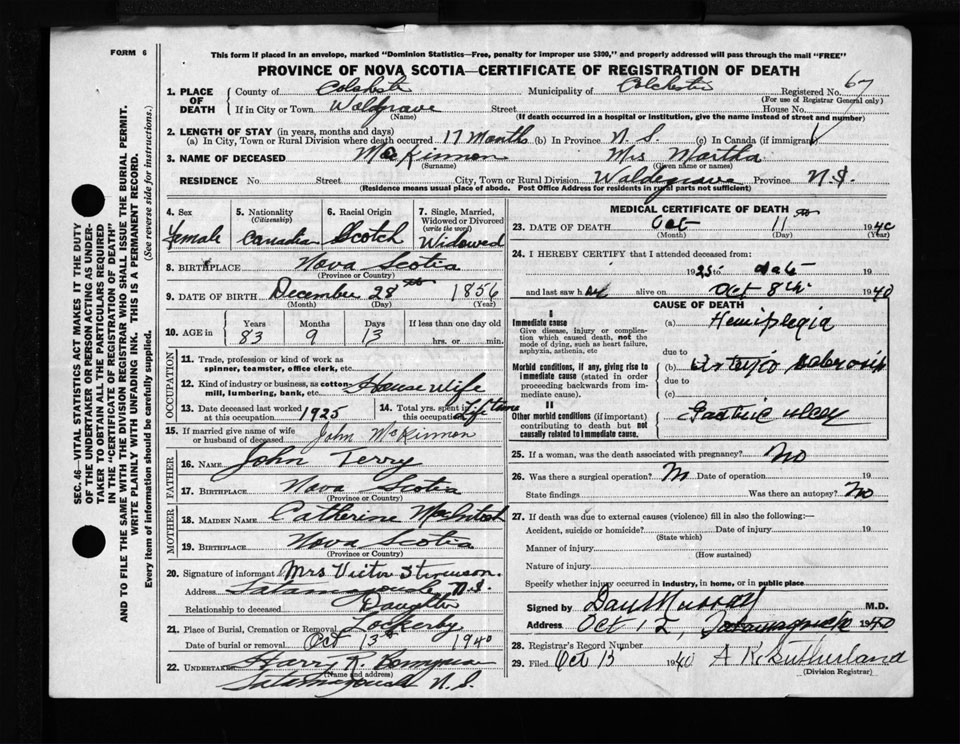 FORM 6
This form if placed in an envelope, marked "Dominion Statistics—Free, penalty for improper use $300," and properly addressed will pass through the mail "FREE"
PROVINCE OF NOVA SCOTIA—CERTIFICATE OF REGISTRATION OF DEATH
1. PLACE OF DEATH County of Colchester Municipality of Colchester Registered No. 67
(For use of Registrar General only)
If in City or Town Waldgrave Street House No.
(Name) (If death occurred in a hospital or institution, give the name instead of street and number)
2. LENGTH OF STAY (in years, months and days)
(a) In City, Town or Rural Division where death occurred 17 Months (b) In Province N. S. (c) In Canada (if immigrant)
3. NAME OF DECEASED MacKinnon Mrs Martha
(Surname) (Given name or names)
RESIDENCE No. Street City, Town or Rural Division Waldegrave Province N.S.
(Residence means usual place of abode. Post Office Address for residents in rural parts not sufficient)
4. Sex female
5. Nationality (Citizenship) Canadian
6. Racial Origin Scotch
7. Single, Married, Widowed or Divorced (write the word) Widowed
8. BIRTHPLACE Nova Scotia
(Province or Country)
9. DATE OF BIRTH December 28th 1856
(Month) (Day) (Year)
10. AGE in Years Months Days If less than one day old
83 9 13 hrs. or min.
OCCUPATION
11. Trade, profession or kind of work as spinner, teamster, office clerk, etc.
12. Kind of industry or business, as cotton-mill, lumbering, bank, etc. House Wife
13. Date deceased last worked at this occupation 1925
14. Total yrs. spent in this occupation Life time
15. If married give name of wife or husband of deceased John McKinnon
FATHER
16. NAME John Terry
17. BIRTHPLACE Nova Scotia
(Province or Country)
MOTHER
18. MAIDEN NAME Catherine MacIntosh
19. BIRTHPLACE Nova Scotia
(Province or Country)
20. Signature of informant Mrs Victor Stevenson.
Address Tatamagouche N.S.
Relationship to deceased Daughter
21. Place of Burial, Cremation or Removal Lockerby
Date of burial or removal Oct 13th 1940
22. UNDERTAKER Harry R.
(Name and address)
Tatamagouche N.S.
MEDICAL CERTIFICATE OF DEATH
23. DATE OF DEATH Oct 11th 1940
(Month) (Day) (Year)
24. I HEREBY CERTIFY that I attended deceased from:
1925 to date 19
and last saw her alive on Oct 8th 1940
CAUSE OF DEATH
I
Immediate cause
Give disease, injury or complication which caused death, not the mode of dying, such as heart failure, asphyxia, asthenia, etc
(a) Hemiplegia
due to
Morbid conditions, if any, giving rise to immediate cause (stated in order proceeding backwards from immediate cause).
(b) Arterio Sclerosis
due to
(c)
II
Other morbid conditions (if important) contributing to death but not causally related to immediate cause.
Gastric ulcer
25. If a woman, was the death associated with pregnancy? No
26. Was there a surgical operation? No Date of operation 19
State findings Was there an autopsy? No
27. If death was due to external causes (violence) fill in also the following:—
Accident, suicide or homicide? Date of injury 19
(State which)
Manner of injury
(How sustained)
Nature of injury
Specify whether injury occurred in industry, in home, or in public place
Signed by Dan Murray M.D.
Address Oct 12, Tatamagouche 1940
28. Registrar's Record Number
29. Filed Oct 13 1940 A K Sutherland
(Division Registrar)
SEC. 46—VITAL STATISTICS ACT MAKES IT THE DUTY
OF THE UNDERTAKER OR PERSON ACTING AS UNDER-
TAKER TO OBTAIN ALL THE PARTICULARS REQUIRED
IN THE "CERTIFICATE OF REGISTRATION OF DEATH"
AND TO FILE THE SAME WITH THE DIVISION REGISTRAR WHO SHALL ISSUE THE BURIAL PERMIT.
WRITE PLAINLY WITH UNFADING INK. THIS IS A PERMANENT RECORD.
Every item of information should be carefully supplied. (See reverse side for instructions.)